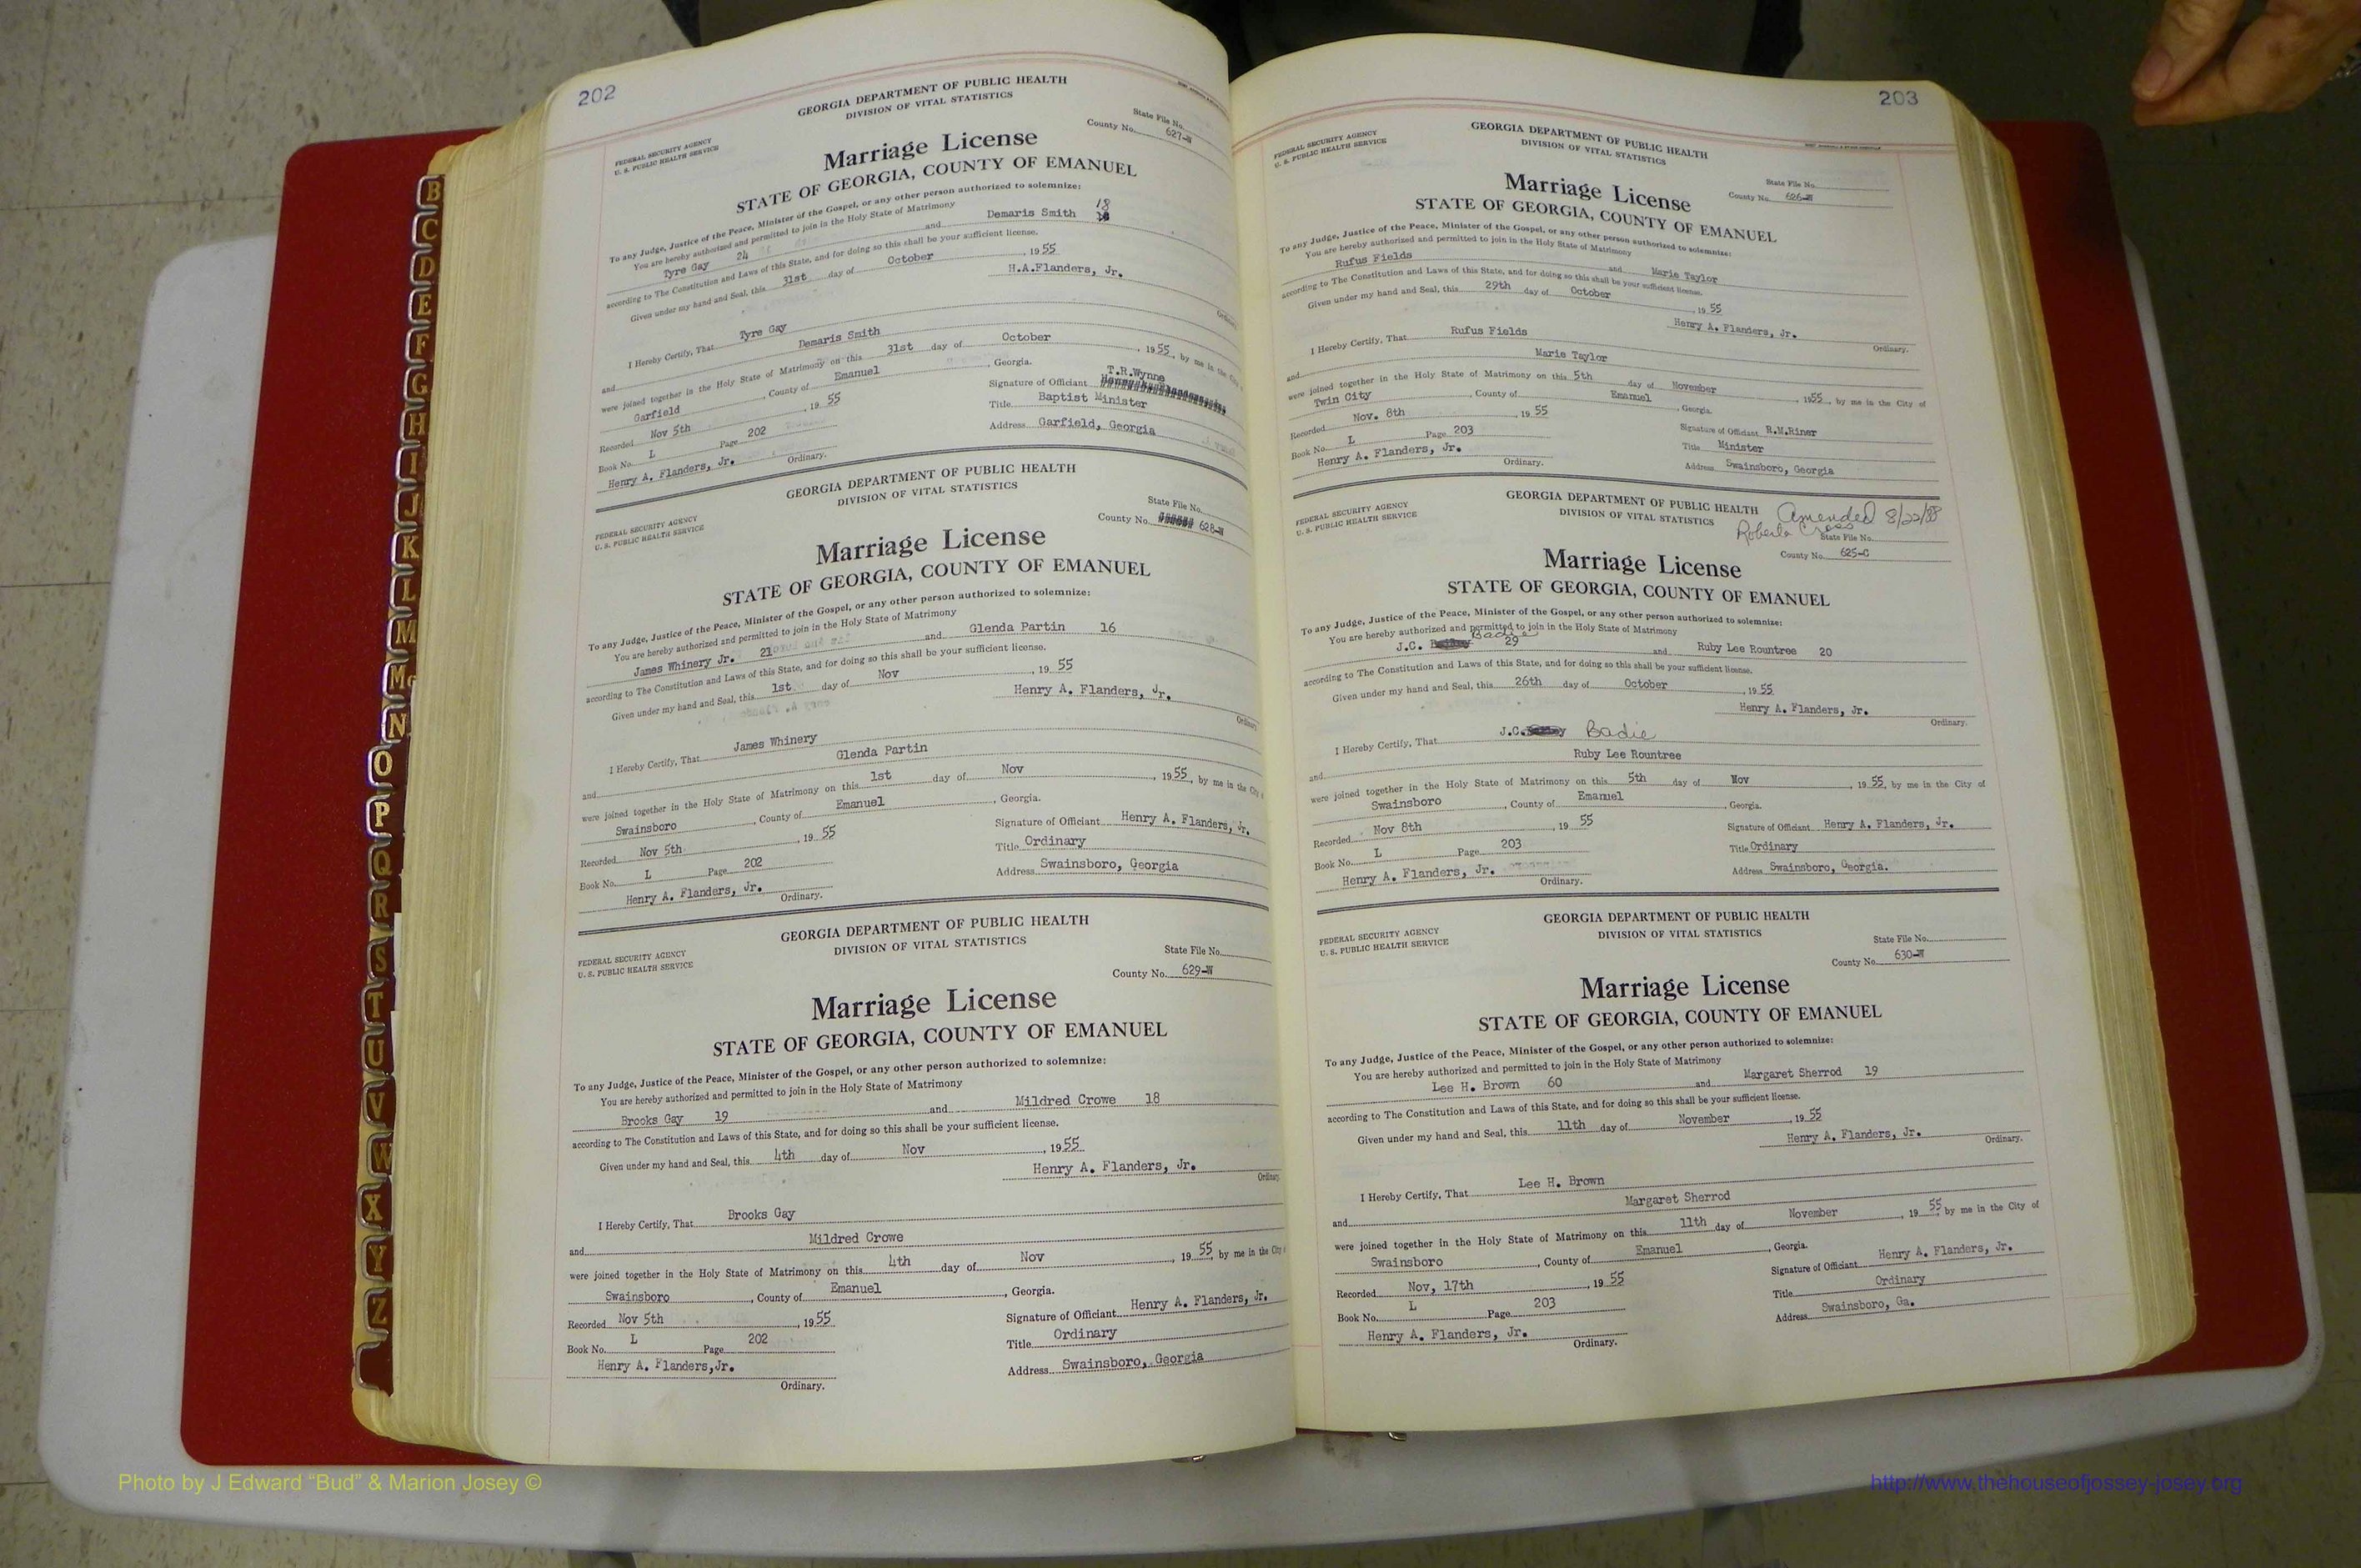 202
GEORGIA DEPARTMENT OF PUBLIC HEALTH
DIVISION OF VITAL STATISTICS
FEDERAL SECURITY AGENCY
U. S. PUBLIC HEALTH SERVICE
State File No.
County No. 627-W
Marriage License
STATE OF GEORGIA, COUNTY OF EMANUEL
To any Judge, Justice of the Peace, Minister of the Gospel, or any other person authorized to solemnize:
You are hereby authorized and permitted to join in the Holy State of Matrimony
Tyre Gay 24 and Demaris Smith 18
according to The Constitution and Laws of this State, and for doing so this shall be your sufficient license.
Given under my hand and Seal, this 31st day of October, 1955
H.A.Flanders, Jr.
Ordinary
I Hereby Certify, That Tyre Gay
and Demaris Smith
were joined together in the Holy State of Matrimony on this 31st day of October, 1955, by me in the City
Garfield, County of Emanuel, Georgia.
Recorded Nov 5th, 1955
Signature of Officiant T.R.Wynne
Book No. L Page 202
Title Baptist Minister
Henry A. Flanders, Jr. Ordinary.
Address Garfield, Georgia
GEORGIA DEPARTMENT OF PUBLIC HEALTH
DIVISION OF VITAL STATISTICS
FEDERAL SECURITY AGENCY
U. S. PUBLIC HEALTH SERVICE
State File No.
County No. 628-W
Marriage License
STATE OF GEORGIA, COUNTY OF EMANUEL
To any Judge, Justice of the Peace, Minister of the Gospel, or any other person authorized to solemnize:
You are hereby authorized and permitted to join in the Holy State of Matrimony
James Whinery Jr. 21 and Glenda Partin 16
according to The Constitution and Laws of this State, and for doing so this shall be your sufficient license.
Given under my hand and Seal, this 1st day of Nov, 1955
Henry A. Flanders, Jr.
Ordinary
I Hereby Certify, That James Whinery
and Glenda Partin
were joined together in the Holy State of Matrimony on this 1st day of Nov, 1955, by me in the City
Swainsboro, County of Emanuel, Georgia.
Recorded Nov 5th, 1955
Signature of Officiant Henry A. Flanders, Jr.
Book No. L Page 202
Title Ordinary
Henry A. Flanders, Jr. Ordinary.
Address Swainsboro, Georgia
GEORGIA DEPARTMENT OF PUBLIC HEALTH
DIVISION OF VITAL STATISTICS
FEDERAL SECURITY AGENCY
U. S. PUBLIC HEALTH SERVICE
State File No.
County No. 629-W
Marriage License
STATE OF GEORGIA, COUNTY OF EMANUEL
To any Judge, Justice of the Peace, Minister of the Gospel, or any other person authorized to solemnize:
You are hereby authorized and permitted to join in the Holy State of Matrimony
Brooks Gay 19 and Mildred Crowe 18
according to The Constitution and Laws of this State, and for doing so this shall be your sufficient license.
Given under my hand and Seal, this 4th day of Nov, 1955
Henry A. Flanders, Jr.
Ordinary
I Hereby Certify, That Brooks Gay
and Mildred Crowe
were joined together in the Holy State of Matrimony on this 4th day of Nov, 1955 by me in the City
Swainsboro, County of Emanuel, Georgia.
Recorded Nov 5th, 1955
Signature of Officiant Henry A. Flanders, Jr.
Book No. L Page 202
Title Ordinary
Henry A. Flanders,Jr.
Ordinary.
Address Swainsboro, Georgia
203
GEORGIA DEPARTMENT OF PUBLIC HEALTH
DIVISION OF VITAL STATISTICS
FEDERAL SECURITY AGENCY
U. S. PUBLIC HEALTH SERVICE
State File No.
County No. 626-W
Marriage License
STATE OF GEORGIA, COUNTY OF EMANUEL
To any Judge, Justice of the Peace, Minister of the Gospel, or any other person authorized to solemnize:
You are hereby authorized and permitted to join in the Holy State of Matrimony
Rufus Fields and Marie Taylor
according to The Constitution and Laws of this State, and for doing so this shall be your sufficient license.
Given under my hand and Seal, this 29th day of October, 1955
Henry A. Flanders, Jr.
Ordinary.
I Hereby Certify, That Rufus Fields
and Marie Taylor
were joined together in the Holy State of Matrimony on this 5th day of November, 1955, by me in the City of
Twin City, County of Emanuel, Georgia.
Recorded Nov. 8th, 1955
Signature of Officiant R.M.Riner
Book No. L Page 203
Title Minister
Henry A. Flanders, Jr. Ordinary.
Address Swainsboro, Georgia
GEORGIA DEPARTMENT OF PUBLIC HEALTH
DIVISION OF VITAL STATISTICS
Amended 8/22/88
Roberta Cross
FEDERAL SECURITY AGENCY
U. S. PUBLIC HEALTH SERVICE
State File No.
County No. 625-C
Marriage License
STATE OF GEORGIA, COUNTY OF EMANUEL
To any Judge, Justice of the Peace, Minister of the Gospel, or any other person authorized to solemnize:
You are hereby authorized and permitted to join in the Holy State of Matrimony
J.C. Badie 29 and Ruby Lee Rountree 20
according to The Constitution and Laws of this State, and for doing so this shall be your sufficient license.
Given under my hand and Seal, this 26th day of October, 1955
Henry A. Flanders, Jr.
Ordinary.
I Hereby Certify, That J.C. Badie
and Ruby Lee Rountree
were joined together in the Holy State of Matrimony on this 5th day of Nov, 1955, by me in the City of
Swainsboro, County of Emanuel, Georgia.
Recorded Nov 8th, 1955
Signature of Officiant Henry A. Flanders, Jr.
Book No. L Page 203
Title Ordinary
Henry A. Flanders, Jr. Ordinary.
Address Swainsboro, Georgia.
GEORGIA DEPARTMENT OF PUBLIC HEALTH
DIVISION OF VITAL STATISTICS
FEDERAL SECURITY AGENCY
U. S. PUBLIC HEALTH SERVICE
State File No.
County No. 630-W
Marriage License
STATE OF GEORGIA, COUNTY OF EMANUEL
To any Judge, Justice of the Peace, Minister of the Gospel, or any other person authorized to solemnize:
You are hereby authorized and permitted to join in the Holy State of Matrimony
Lee H. Brown 60 and Margaret Sherrod 19
according to The Constitution and Laws of this State, and for doing so this shall be your sufficient license.
Given under my hand and Seal, this 11th day of November, 1955
Henry A. Flanders, Jr.
Ordinary.
I Hereby Certify, That Lee H. Brown
and Margaret Sherrod
were joined together in the Holy State of Matrimony on this 11th day of November, 1955, by me in the City of
Swainsboro, County of Emanuel, Georgia.
Recorded Nov, 17th, 1955
Signature of Officiant Henry A. Flanders, Jr.
Book No. L Page 203
Title Ordinary
Henry A. Flanders, Jr.
Ordinary.
Address Swainsboro, Ga.
B
C
D
E
F
G
H
I
J
K
L
M
Mc
N
O
P
Q
R
S
T
U
V
W
X
Y
Z
Photo by J Edward “Bud” & Marion Josey ©
http://www.thehouseofjossey-josey.org